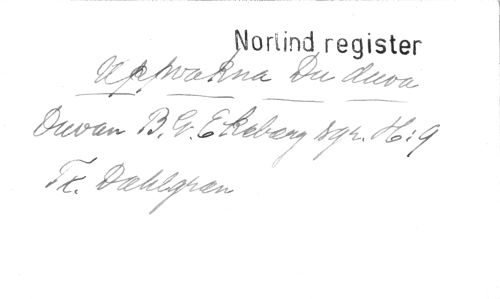 Norlind register
Uppvakna Du duva
Duvan B. G. Ekeberg sgr. H:9
Tr. Dahlgren